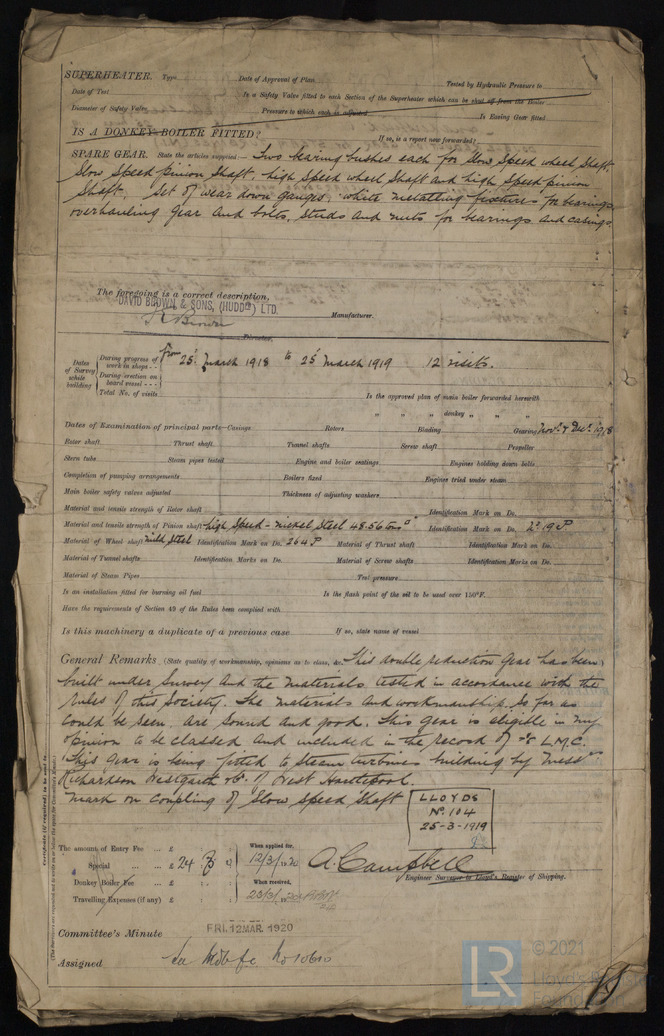 SUPERHEATER. Type Date of Approval of Plan Tested by Hydraulic Pressure to
Date of Test Is a Safety Valve fitted to each Section of the Superheater which can be shut off from the Boiler
Diameter of Safety Valve Pressure to which each is adjusted Is Easing Gear fitted
IS A DONKEY BOILER FITTED? If so, is a report now forwarded?
SPARE GEAR. State the articles supplied:— Two bearing bushes each for Slow Speed wheel shaft,
Slow Speed pinion shaft, high speed wheel shaft and high speed pinion
shaft. Set of wear down gauges, white metalling fixtures for bearings
overhauling gear and bolts, studs and nuts for bearings and casings
The foregoing is a correct description,
DAVID BROWN & SONS, (HUDD) LTD.
Brown Manufacturer.
Director.
Dates of Survey while building
During progress of work in shops - - From 25 March 1918 to 25 March 1919 12 visits.
During erection on board vessel - - -
Total No. of visits
Is the approved plan of main boiler forwarded herewith
" " " donkey " " "
Dates of Examination of principal parts—Casings Rotors Blading Gearing Nov. & Dec. 1918
Rotor shaft Thrust shaft Tunnel shafts Screw shaft Propeller
Stern tube Steam pipes tested Engine and boiler seatings Engines holding down bolts
Completion of pumping arrangements Boilers fixed Engines tried under steam
Main boiler safety valves adjusted Thickness of adjusting washers
Material and tensile strength of Rotor shaft Identification Mark on Do.
Material and tensile strength of Pinion shaft high speed - nickel steel 48.56 tons □" Identification Mark on Do. 219 P
Material of Wheel shaft mild steel Identification Mark on Do. 264 P Material of Thrust shaft Identification Mark on Do.
Material of Tunnel shafts Identification Marks on Do. Material of Screw shafts Identification Marks on Do.
Material of Steam Pipes Test pressure
Is an installation fitted for burning oil fuel Is the flash point of the oil to be used over 150°F.
Have the requirements of Section 49 of the Rules been complied with
Is this machinery a duplicate of a previous case If so, state name of vessel
General Remarks (State quality of workmanship, opinions as to class, &c. This double reduction gear has been
built under survey and the materials tested in accordance with the
rules of this Society. The materials and workmanship so far as
could be seen are sound and good. This gear is eligible in my
opinion to be classed and included in the record of L.M.C.
This gear is being fitted to steam turbines building by Mess
Richardson Westgarth of West Hartlepool.
Mark on coupling of Slow Speed Shaft
LLOYDS
No. 104
25-3-1919
Certificate (if required) to be sent to
(The Surveyors are requested not to write on or below the space for Committee's Minute.)
The amount of Entry Fee ... £ : : When applied for,
Special ... ... £ 24 : 12/3/1920 A. Campbell
Donkey Boiler Fee ... £ : : When received, Engineer Surveyor to Lloyd's Register of Shipping.
Travelling Expenses (if any) £ : : 23/3/1920
Committee's Minute FRI. 12 MAR. 1920
Assigned See
LR
© 2021
Lloyd's Register
Foundation